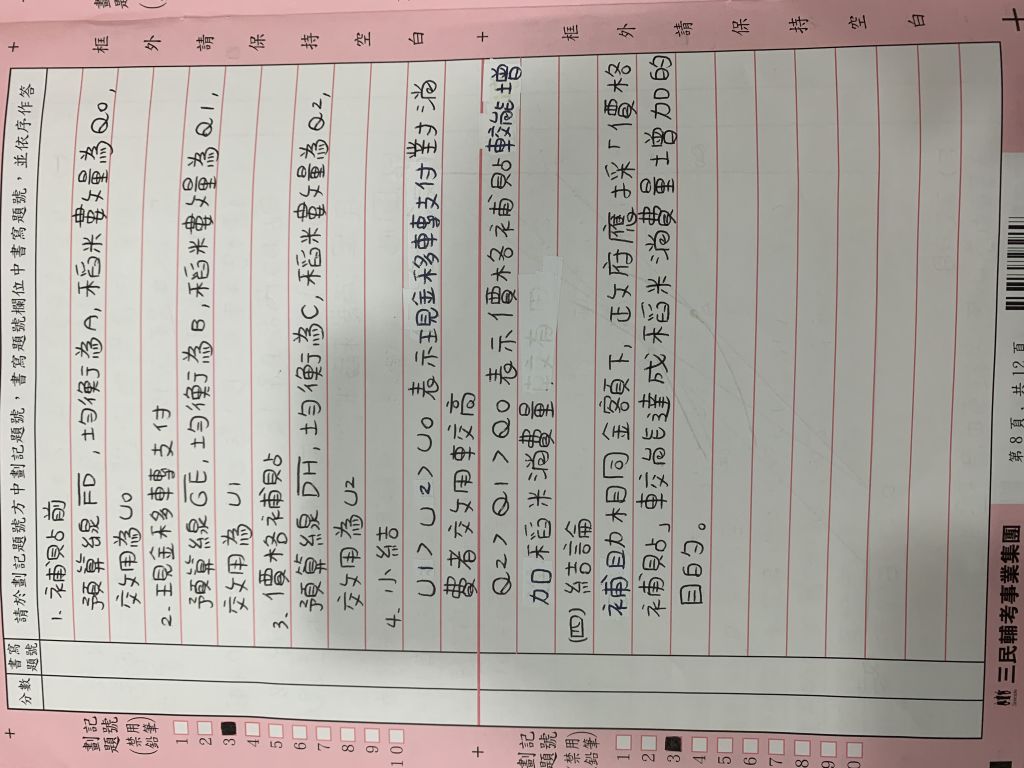 框 外 請 保 持 空 白
框 外 請 保 持 空 白
分數
書寫題號
請於劃記題號方中劃記題號，書寫題號欄位中書寫題號，並依序作答
1. 補貼前
預算線FD，均衡為A，稻米數量為Q0，
效用為U0
2. 現金移轉支付
預算線GE，均衡為B，稻米數量為Q1，
效用為U1
3. 價格補貼
預算線DH，均衡為C，稻米數量為Q2，
效用為U2
4. 小結
U1>U2>U0表示現金移轉支付對消
費者效用較高
Q2>Q1>Q0表示價格補貼較能增
加稻米消費量
(四) 結論
補助相同金額下，政府應採「價格
補貼」較能達成稻米消費量增加的
目的。
劃記題號
(禁用鉛筆)
1
2
3
4
5
6
7
8
9
10
劃記題號
(禁用鉛筆)
1
2
3
4
5
6
7
8
9
0
三民輔考事業集團
第 8 頁，共 12 頁